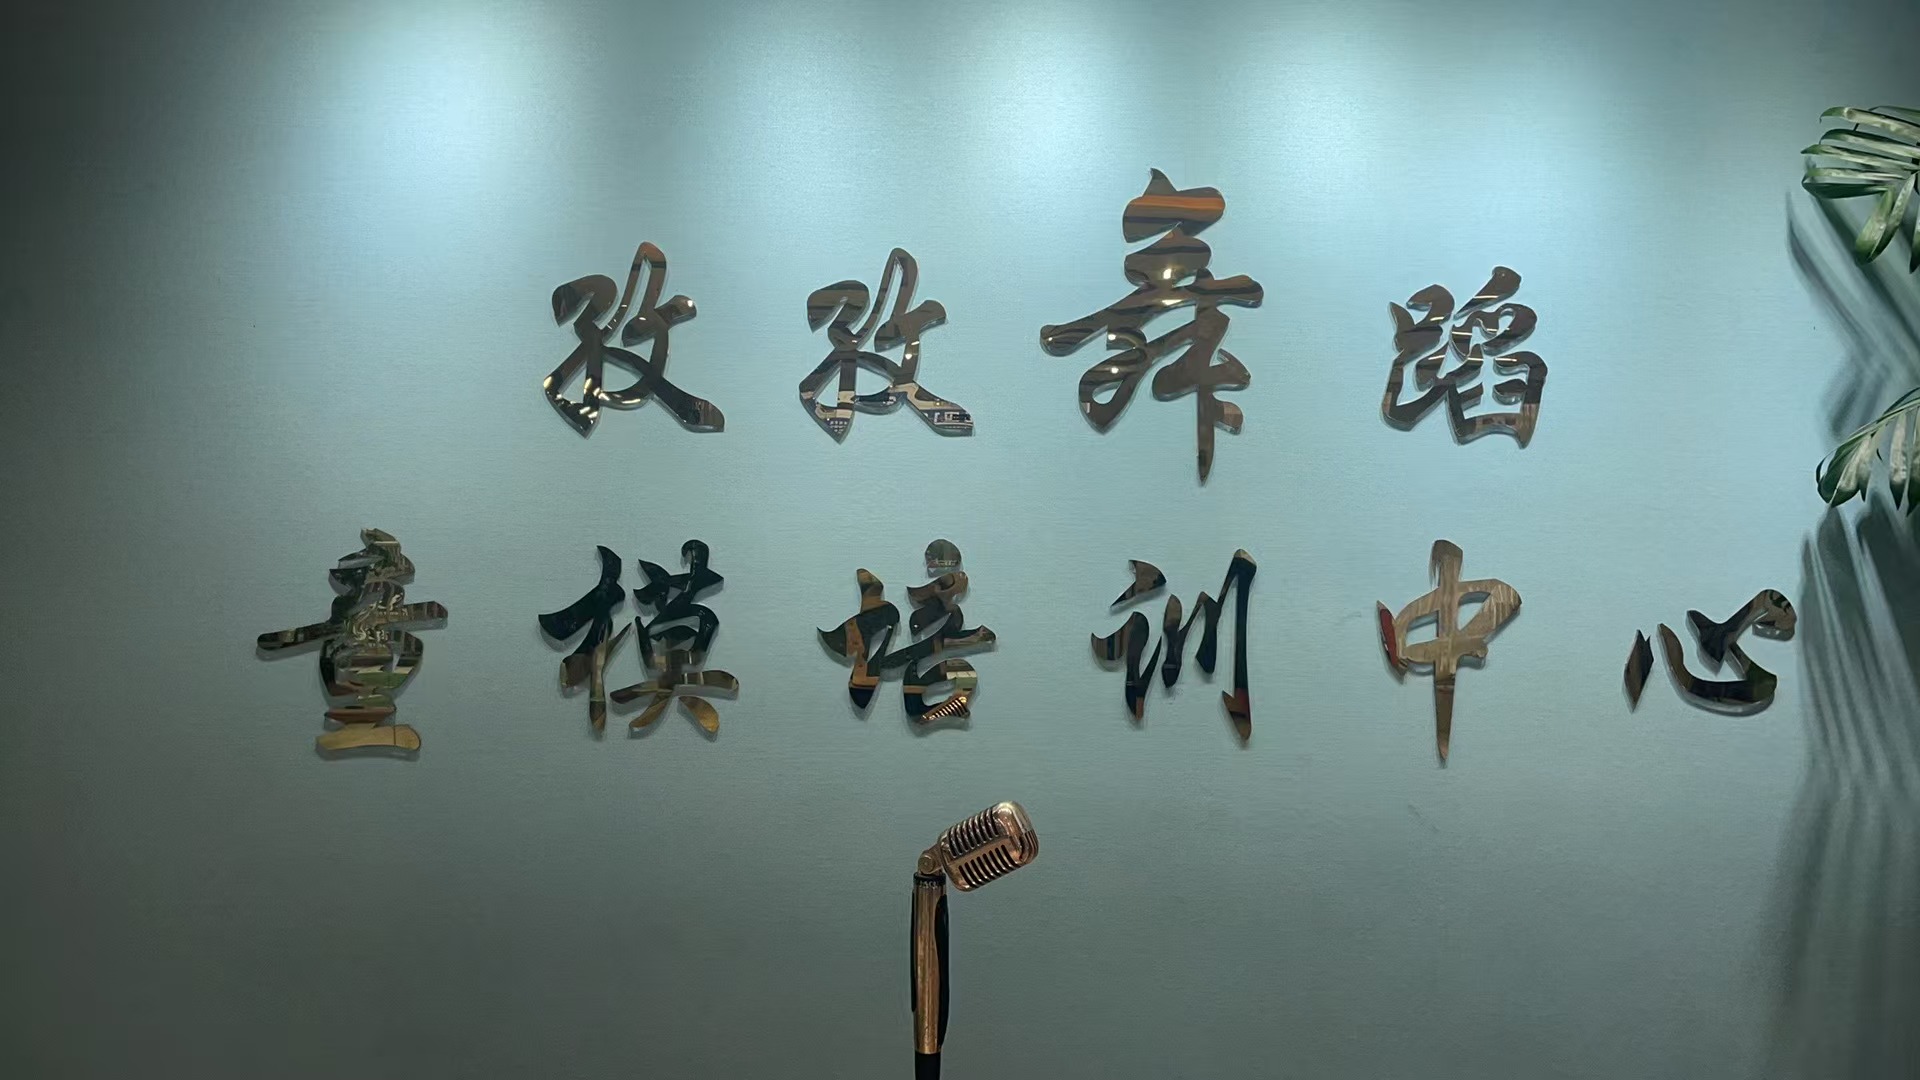 孜孜舞蹈
童模培训中心